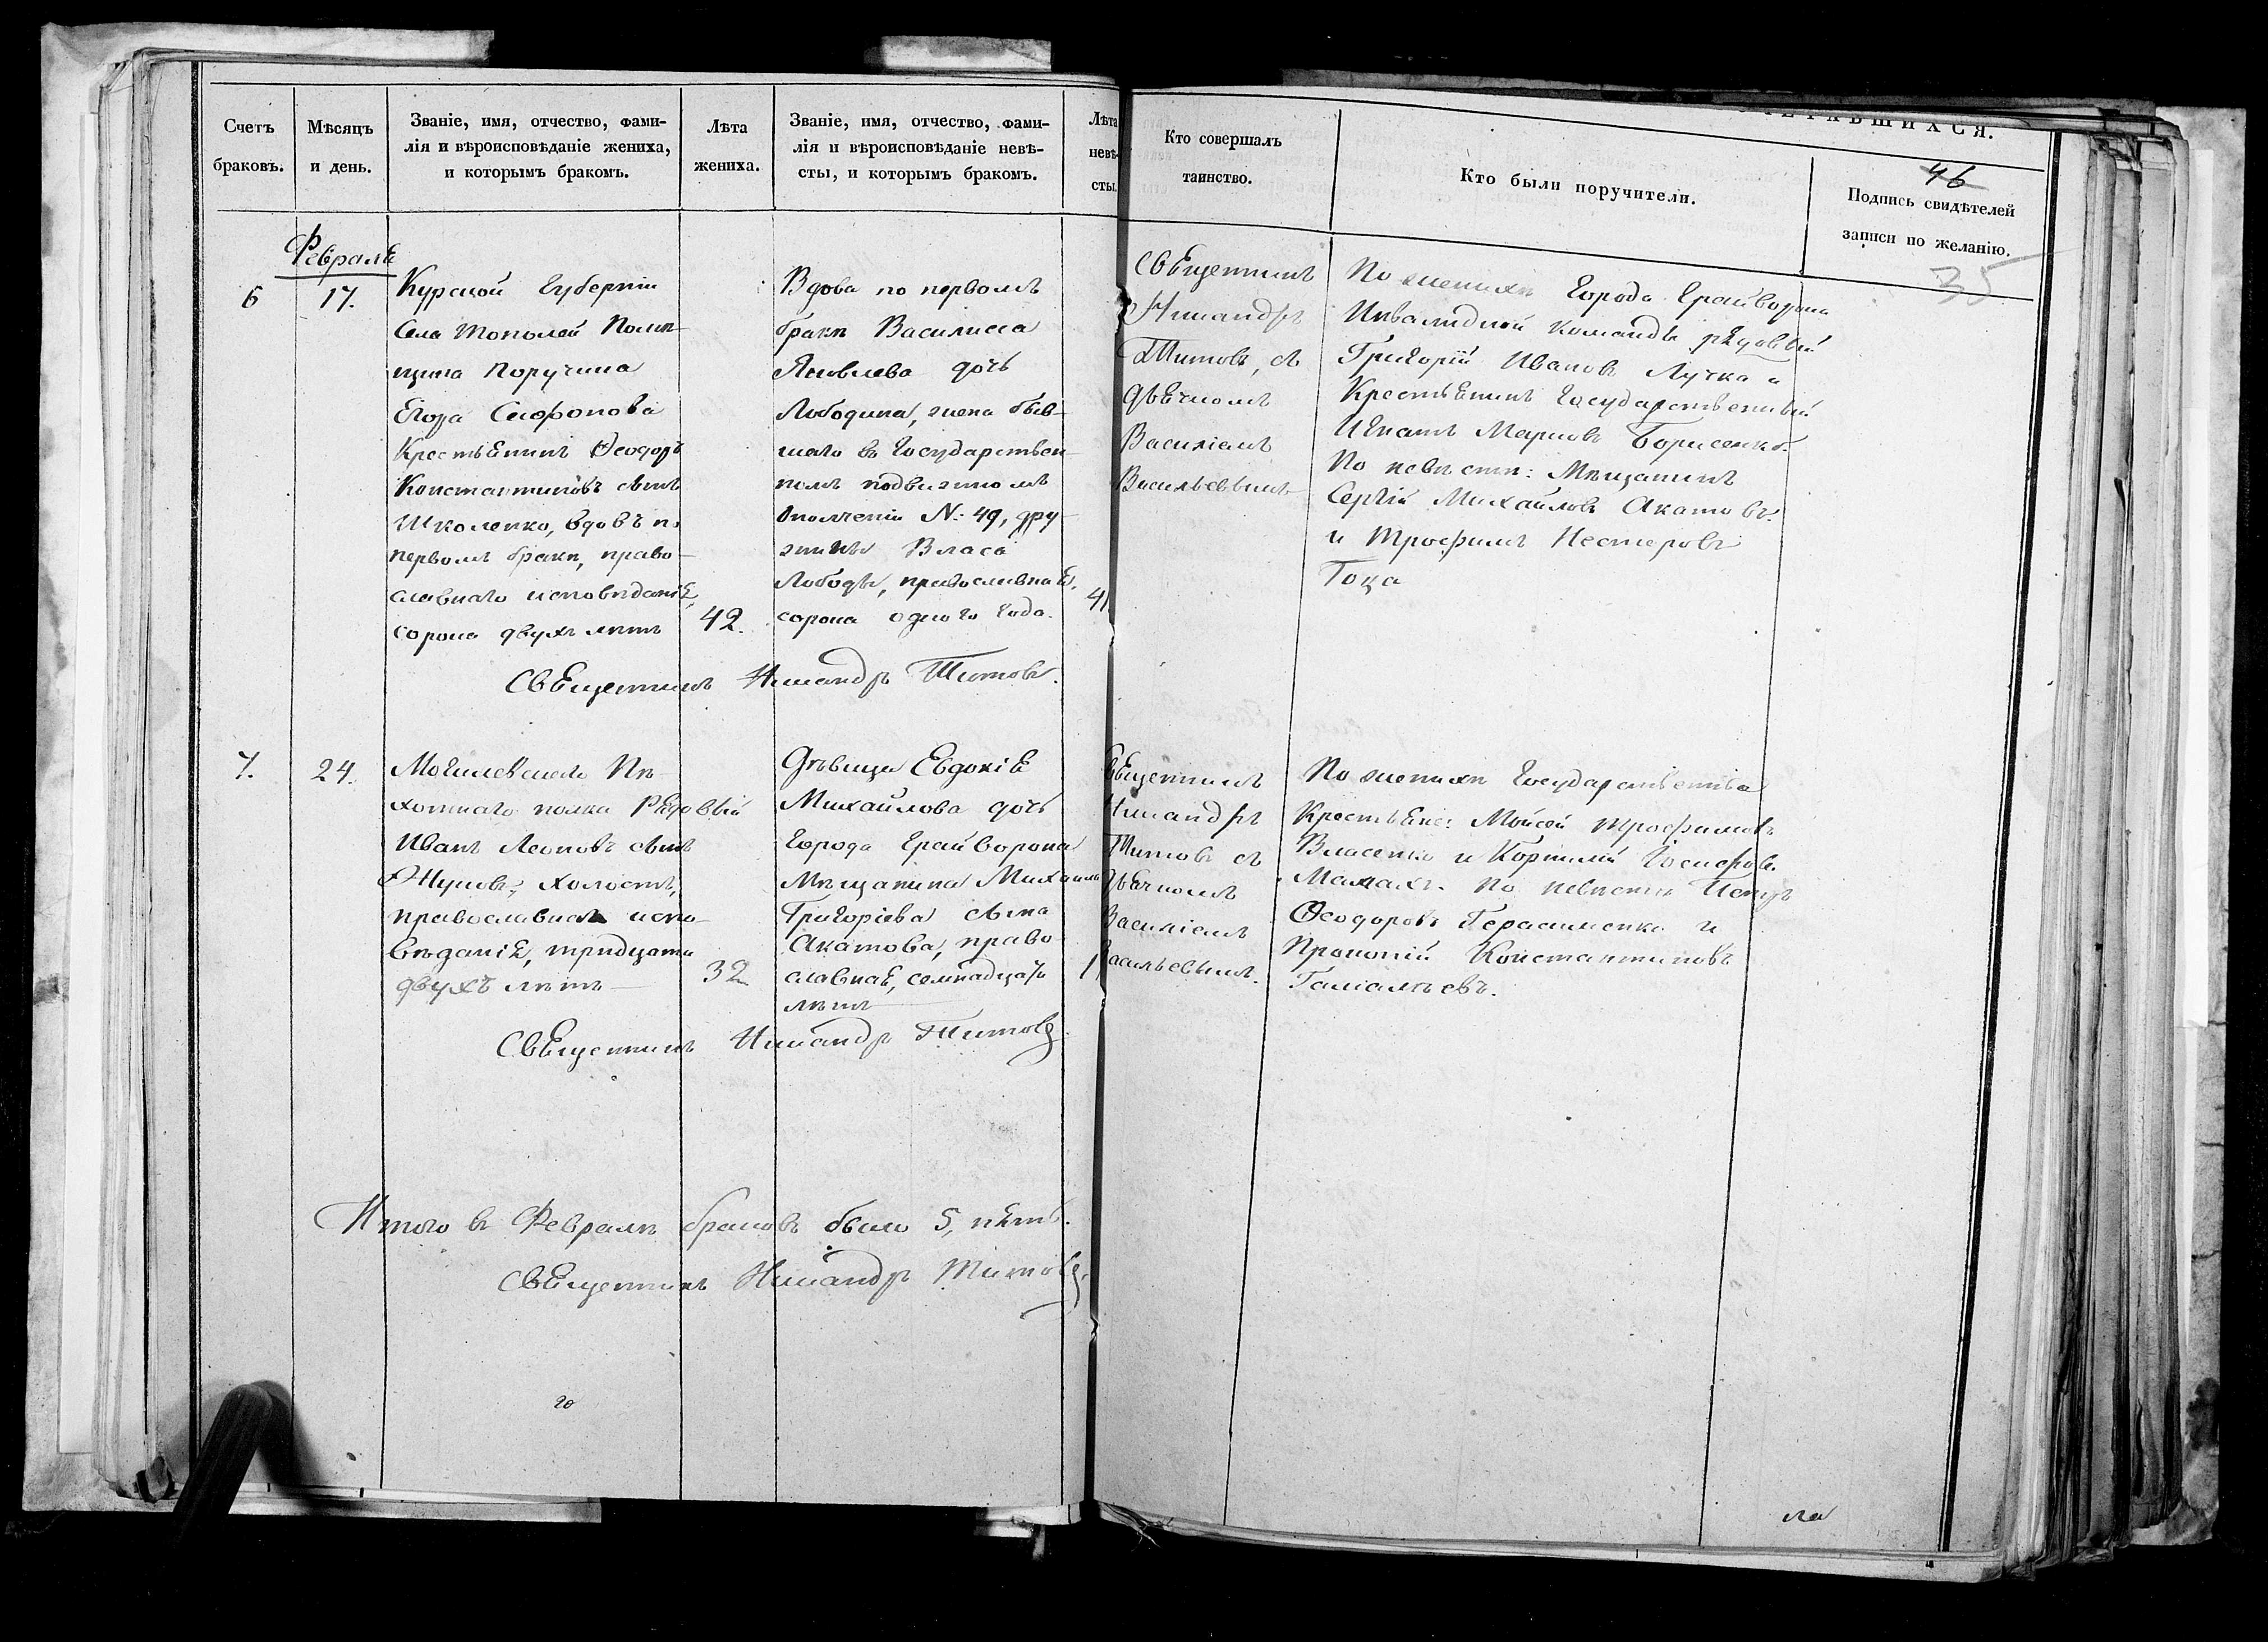 Счетъ
браковъ.
Мѣсяцъ
и день.
Званіе, имя, отчество, фами-
лія и вѣроисповѣданіе жениха,
и которымъ бракомъ.
Лѣта
жениха.
Званіе, имя, отчество, фами-
лія и вѣроисповѣданіе невѣ-
сты, и которымъ бракомъ.
Лѣта
невѣ-
сты.
Февраля
6
17.
Курской Губерніи
Села Тополей Помѣ-
щика Поручика
Егора Сафонова
Крестьянинъ Ѳеодоръ
Константиновъ сынъ
Школенко, вдовъ по
первомъ бракѣ, право-
славнаго исповѣданія,
сорока двухъ лѣтъ
42.
Вдова по первомъ
бракѣ Василисса
Яковлева дочь
Лободина, жена быв-
шаго въ Государствен-
номъ подвижномъ
Ополченіи №: 49, дру-
жины Власа
Лободы, православная,
сорока одного года.
41.
Священникъ Никандръ Титовъ.
7.
24.
Могилевскаго Пѣ-
хотнаго полка Рядовый
Иванъ Леоновъ сынъ
Жуковъ, холостъ,
православнаго испо-
вѣданія, тридцати
двухъ лѣтъ
32
Дѣвица Евдокія
Михайлова дочь
города Грайворона
Мѣщанина Михаила
Григоріева сына
Акатова, право-
славная, семнадцать
лѣтъ
Священникъ Никандръ Титовъ
Итого въ Февралѣ браковъ было 5, пять.
Священникъ Никандръ Титовъ.
го
ЧЕТАВШИХСЯ.
46
35
Кто совершалъ
таинство.
Кто были поручители.
Подпись свидѣтелей
записи по желанію.
Священникъ
Никандръ
Титовъ, съ
дьячкомъ
Василіемъ
Васильевымъ
По женихѣ города Грайворона
Инвалидной команды рядовый
Григорій Ивановъ Лучка и
Крестьянинъ Государственный
Игнатъ Марковъ Борисенко.
По невѣстѣ: Мѣщанинъ
Сергѣй Михайловъ Акатовъ.
и Трофимъ Нестеровъ
Гоца
Священникъ
Никандръ
Титовъ съ
дьячкомъ
Василіемъ
Васильевымъ.
По женихѣ Государственные
Крестьяне: Мойсей Трофимовъ
Власенко и Корнилій Іосифовъ.
Малахъ. По невѣстѣ
Ѳеодоровъ Герасименко и
Прокопій Константиновъ
ла